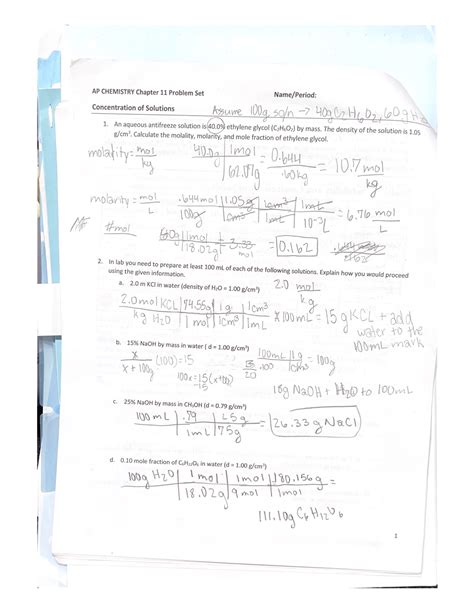 AP CHEMISTRY Chapter 11 Problem Set Name/Period:
Concentration of Solutions Assume 100g soln → 40g C2H6O2, 60g H2O
1. An aqueous antifreeze solution is 40.0% ethylene glycol (C2H6O2) by mass. The density of the solution is 1.05
g/cm3. Calculate the molality, molarity, and mole fraction of ethylene glycol.
molality = mol / kg 40.0g | 1mol / 62.07g = 0.644 / .60kg = 10.7 mol / kg
molarity = mol / L .644mol | 1.05g | 1cm3 | 1mL / 100g | 1cm3 | 1mL | 10-3L = 6.76 mol / L
#mol 60g | 1mol / 18.02g 3.33 mol = 0.162
2. In lab you need to prepare at least 100 mL of each of the following solutions. Explain how you would proceed
using the given information.
a. 2.0 m KCl in water (density of H2O = 1.00 g/cm3) 2.0 mol / kg
2.0mol KCL | 74.55g | 1g | 1cm3 / kg H2O | 1 mol | 1cm3 | 1mL × 100mL = 15g KCL + add
water to the
100mL mark
b. 15% NaOH by mass in water ( d = 1.00 g/cm3)
x / x + 100g (100) = 15 100mL | 1g / 1.00cm3 = 100g
100x = 15(x+100)
18g NaOH + H2O to 100mL
c. 25% NaOH by mass in CH3OH (d = 0.79 g/cm3)
100 mL | .79 | 25g / 1mL | 75g = 26.33 g NaCl
d. 0.10 mole fraction of C6H12O6 in water (d = 1.00 g/cm3)
100g H2O | 1 mol | 1mol | 180.156g / 18.02g | 9 mol | 1mol =
111.10g C6H12O6
1